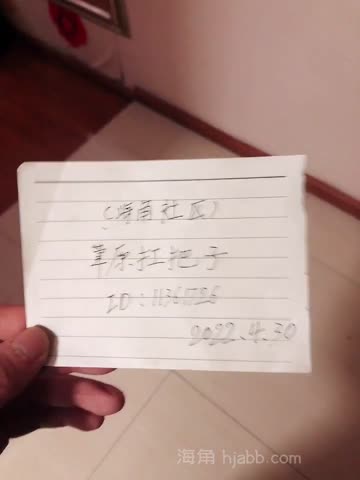 (海角社区)
草原扛把子
ID:11361726
2022.4.30
海角 hjabb.com